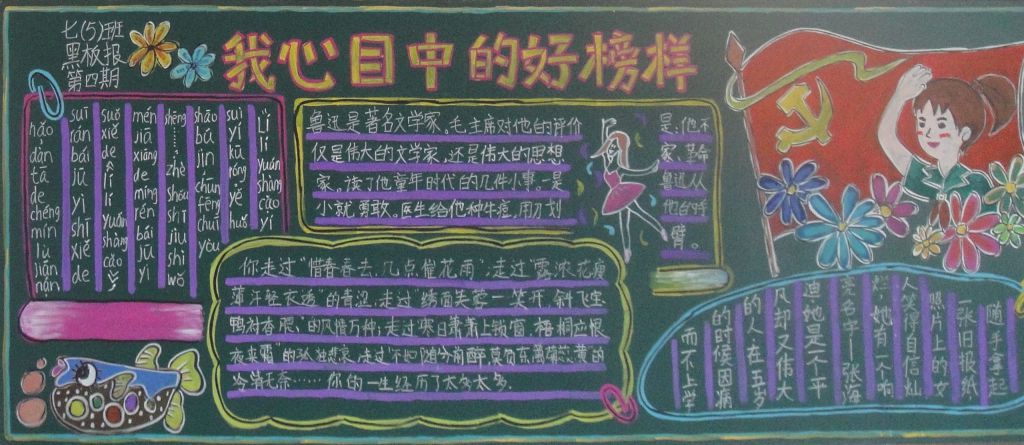 七(5)班
黑板报
第四期
我心目中的好榜样
lǐ lì yuán shàng cǎo yí
suì yí kū róng yě huǒ
shāo bú jìn chūn fēng chuī
shēng…… zhè shǒu shī jiù shì wǒ
mén jiā xiǎng de míng rén bái jū yì
suǒ xiě de lì lí yuán shàng cǎo
suī rán bái jū yì shī xiě de
hǎo dàn tā de chéng mín lù jiān nán
鲁迅是著名文学家。毛主席对他的评价 是:他不
仅是伟大的文学家,还是伟大的思想 家、革命
家。读了他童年时代的几件小事。一是 鲁迅从
小就勇敢。医生给他种牛痘,用刀划 他的 臂。
你走过"惜春春去,几点催花雨",走过"露浓花瘦
薄汗轻衣透"的青涩,走过"绣面芙蓉一笑开,斜飞宝
鸭衬香腮"的风情万种;走过寒日萧萧上锁窗,梧桐应恨
夜来霜"的孤独悲哀,走过"不如随分尊前醉,莫负东篱菊蕊黄的
冷清无奈……你的一生经历了太多太多。
随手拿起
一张旧报纸
照片上的女
人笑得自信灿
烂,她有一个响
亮名字——张海
迪,她是一个平
凡却又伟大
的人,在五岁
的时候因病
而不上学